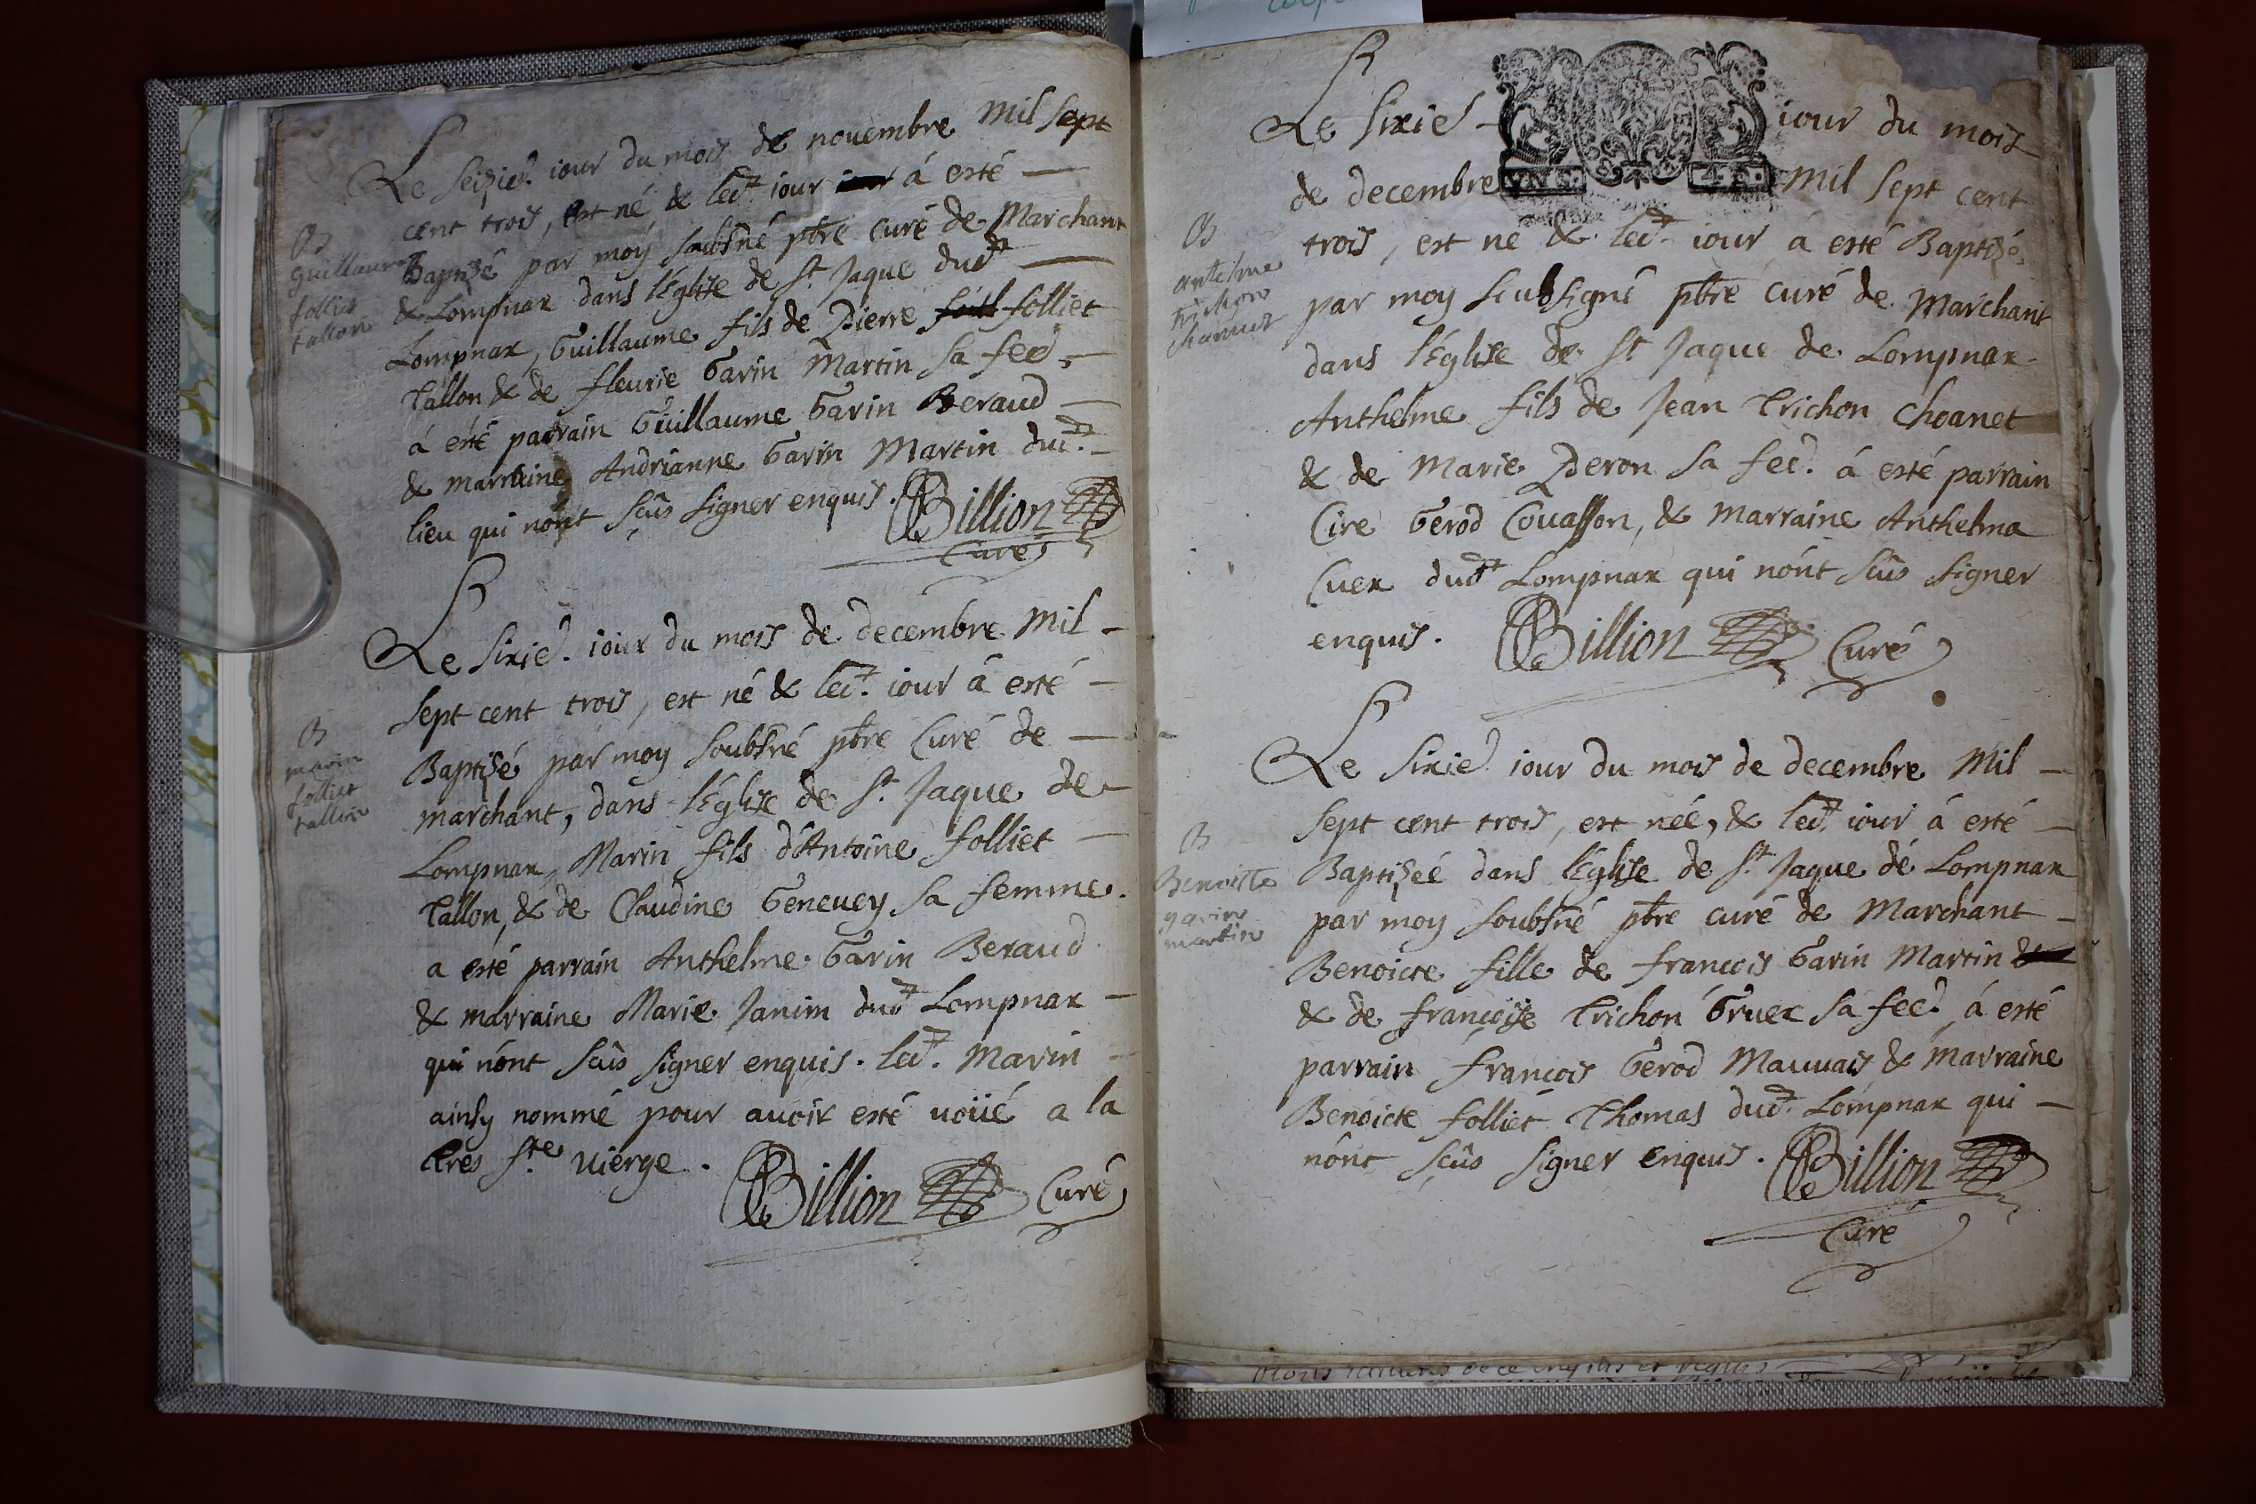 Le seizie.^d iour du mois de novembre mil sept
cent trois, est né & led.^t iour á esté
B
guillaume
folliet
tallon
Baptizé par moy soubsné pbre curé de Marchant
& Lompnax dans l'Eglise de S.^t Jaque dud.^t
Lompnax, Guillaume fils de Pierre folliet
Tallon & de fleurie Garin Martin sa fee.^d
á esté parrain Guillaume Garin Beraud
& marraine Andrianne Garin Martin dud.^t
lieu qui nónt sçûs signer enquis. Billion
Curé
Le sixie.^d iour du mois de decembre mil
sept cent trois, est né & led.^t iour á esté
B
marin
folliet
tallon
Baptizé par moy soubsné pbre Curé de
marchant, dans l'Eglise de S.^t Jaque de
Lompnax, Marin fils d'Antoine folliet
Tallon, & de Claudine Genevey sa femme.
a esté parrain Anthelme Garin Beraud
& marraine Marie Janim dud.^t Lompnax
qui nónt sçûs signer enquis. led.^t Marin
ainsy nommé pour avoir esté voüé a la
tres S.^te vierge. Billion Curé
Le sixie.^d iour du mois
VN S. 4. D.
de decembre mil sept cent
trois, est né & led.^t iour á esté Baptizé
B
anthelme
trichon
par moy soubsigné pbre curé de Marchant
dans l'Eglise de S^t Jaque de Lompnax
Anthelme fils de Jean Trichon Choanet
& de Marie Peron sa fee.^d á esté parrain
Cire Gerod Couasson, & marraine Anthelma
Cuex dud.^t Lompnax qui nónt sçûs signer
enquis. Billion Curé
Le sixie.^d iour du mois de decembre mil
sept cent trois, est née, & led.^t iour á esté
B
Benoiste
garin
martin
Baptizée dans l'Eglise de S.^t Jaque de Lompnax
par moy soubsné pbre curé de Marchant
Benoicte fille de francois Garin Martin
& de francoise Trichon Gruet sa fee.^d á esté
parrain francois Gerod Mauvais & marraine
Benoicte folliet Thomas dud.^t Lompnax qui
nónt sçûs signer enquis. Billion
Curé